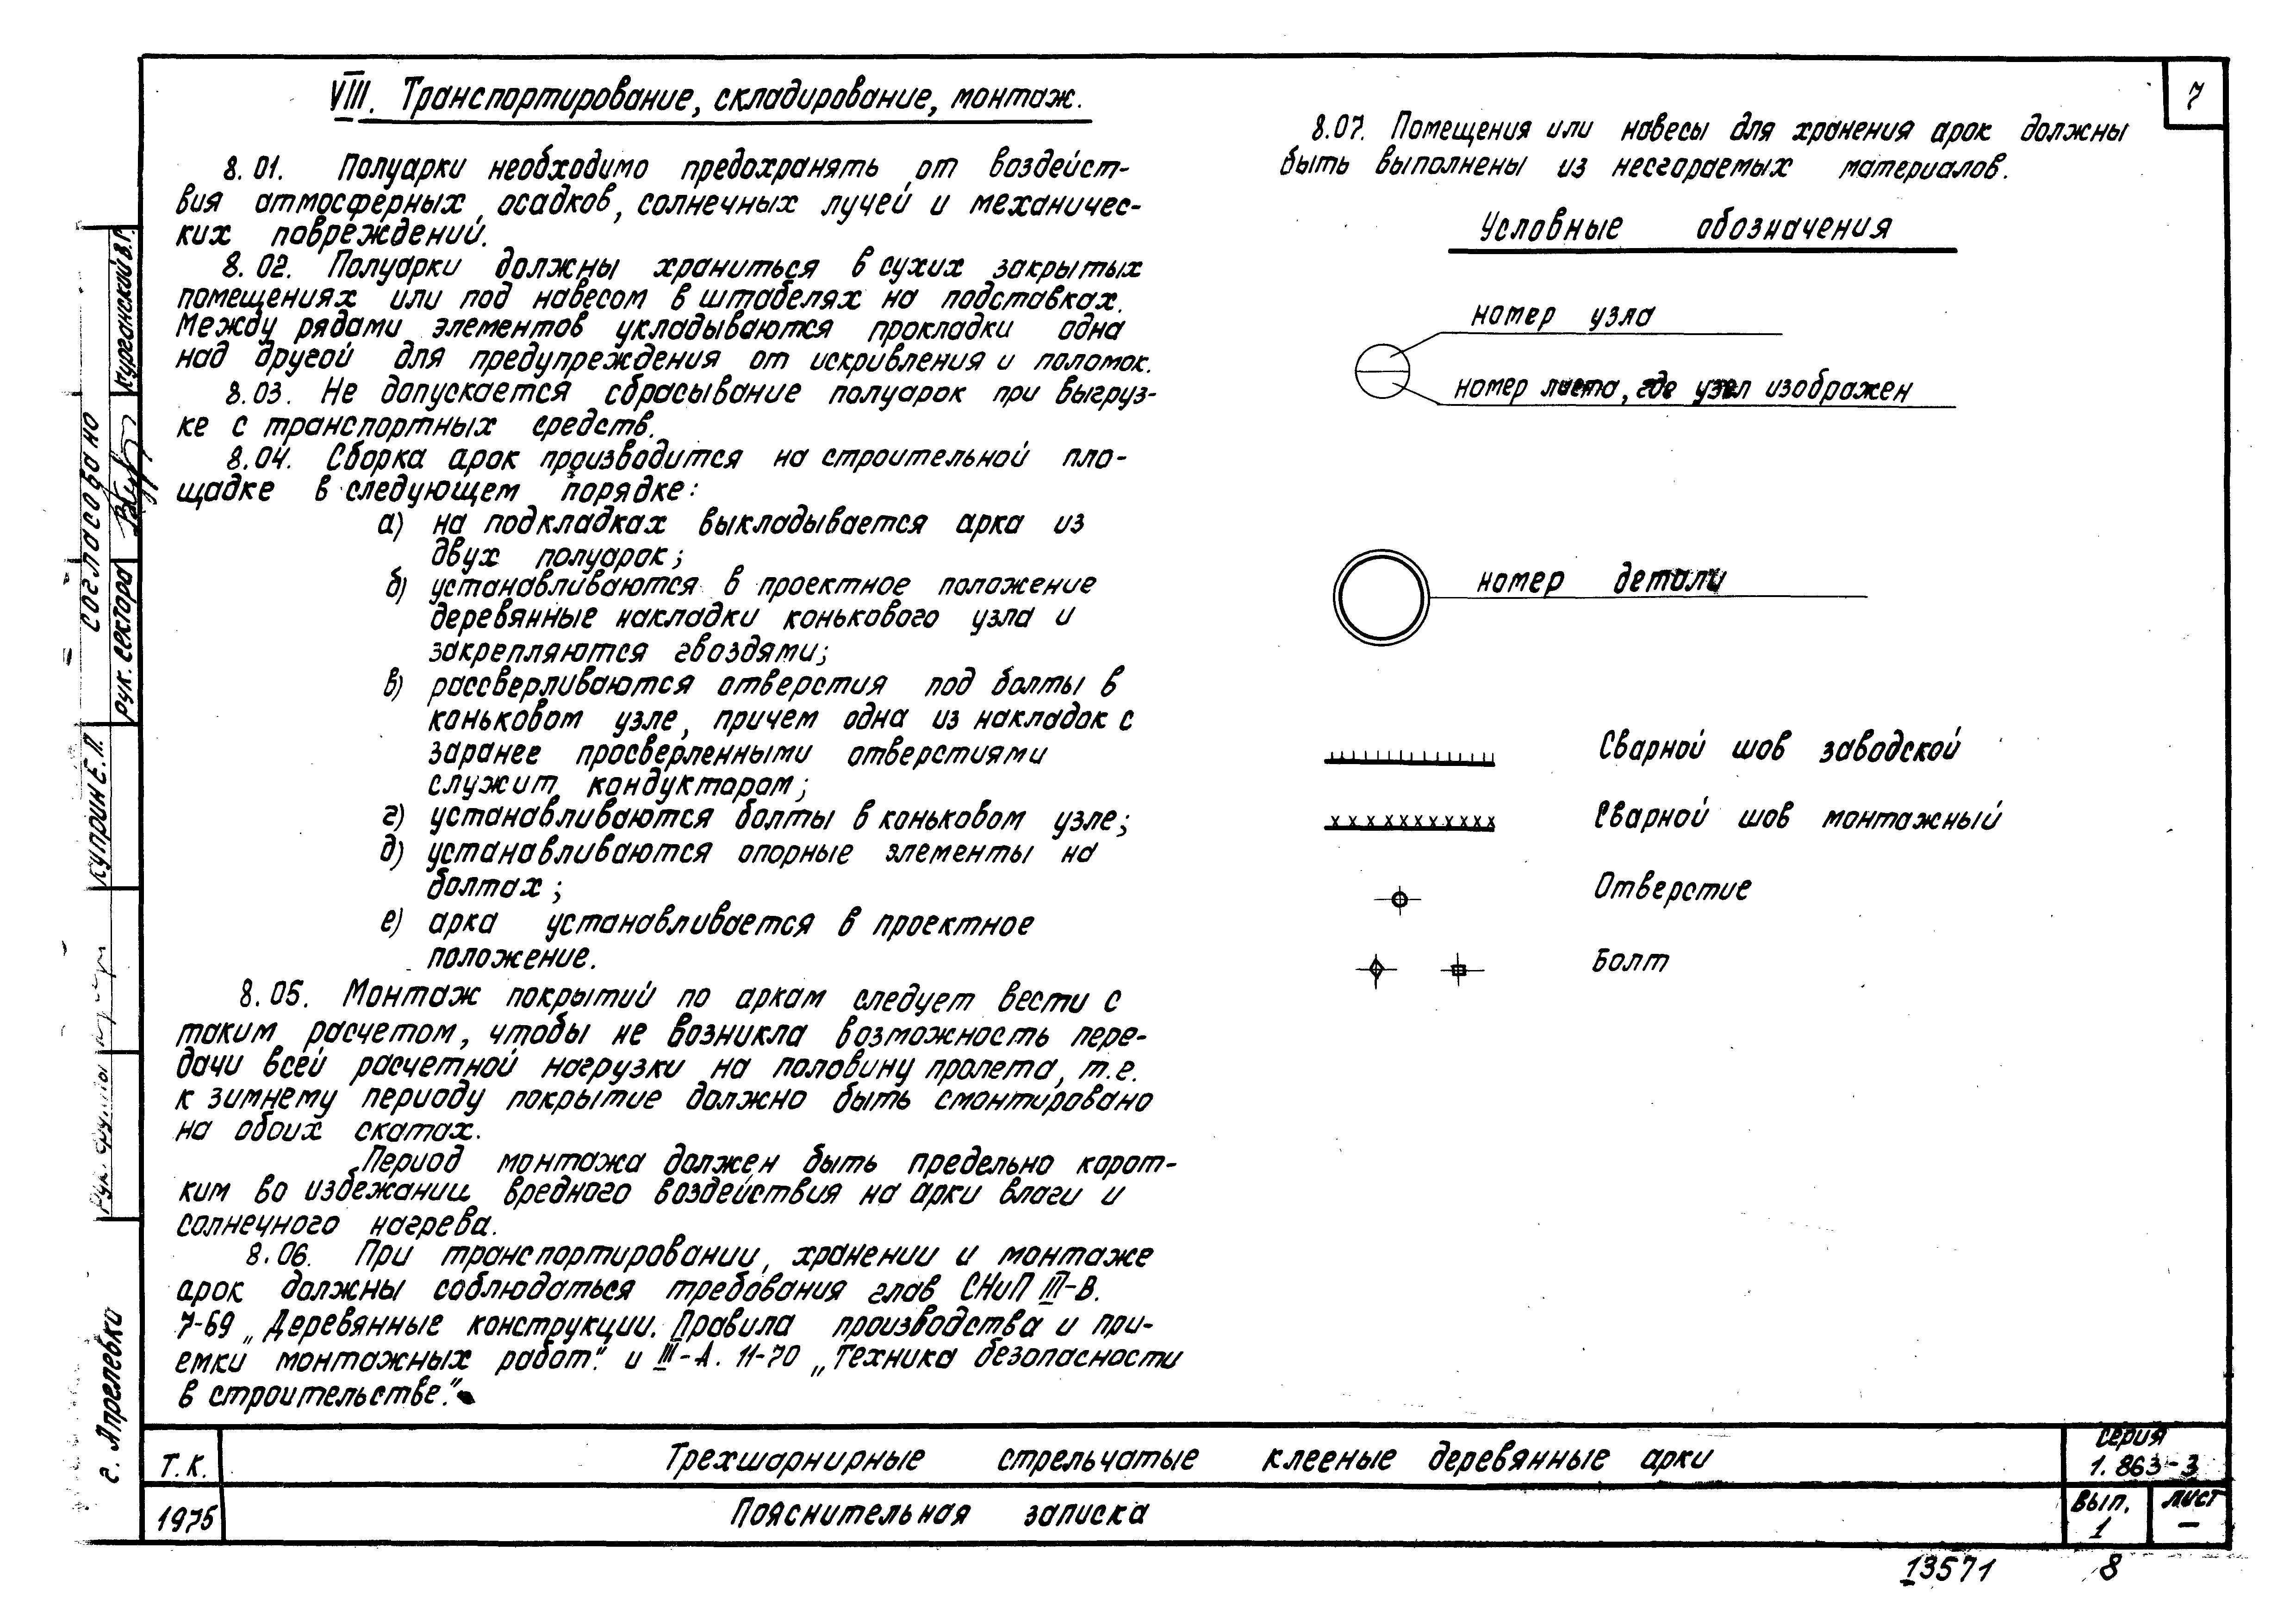 7
VIII. Транспортирование, складирование, монтаж.
8.01. Полуарки необходимо предохранять от воздейст-
вия атмосферных осадков, солнечных лучей и механичес-
ких повреждений.
8.02. Полуарки должны храниться в сухих закрытых
помещениях или под навесом в штабелях на подставках.
Между рядами элементов укладываются прокладки одна
над другой для предупреждения от искривления и поломок.
8.03. Не допускается сбрасывание полуарок при выгруз-
ке с транспортных средств.
8.04. Сборка арок производится на строительной пло-
щадке в следующем порядке:
а) на подкладках выкладывается арка из
двух полуарок;
б) устанавливаются в проектное положение
деревянные накладки конькового узла и
закрепляются гвоздями;
в) рассверливаются отверстия под болты в
коньковом узле, причем одна из накладок с
заранее просверленными отверстиями
служит кондуктором;
г) устанавливаются болты в коньковом узле;
д) устанавливаются опорные элементы на
болтах;
е) арка устанавливается в проектное
положение.
8.05. Монтаж покрытий по аркам следует вести с
таким расчетом, чтобы не возникла возможность пере-
дачи всей расчетной нагрузки на половину пролета, т.е.
к зимнему периоду покрытие должно быть смонтировано
на обоих скатах.
Период монтажа должен быть предельно корот-
ким во избежании вредного воздействия на арки влаги и
солнечного нагрева.
8.06. При транспортировании, хранении и монтаже
арок должны соблюдаться требования глав СНиП III-В.
7-69 „Деревянные конструкции. Правила производства и при-
емки монтажных работ." и III-А. 11-70 „Техника безопасности
в строительстве."
8.07. Помещения или навесы для хранения арок должны
быть выполнены из несгораемых материалов.
Условные обозначения
номер узла
номер листа, где узел изображен
номер детали
Сварной шов заводской
Сварной шов монтажный
Отверстие
Болт
согласовано
Курганский В.Г.
рук. сектора
Куприн Е.П.
г. Апрелевка
Т.К.
Трехшарнирные стрельчатые клееные деревянные арки
серия
1.863-3
1975
Пояснительная записка
вып.
1
лист
—
13571
8